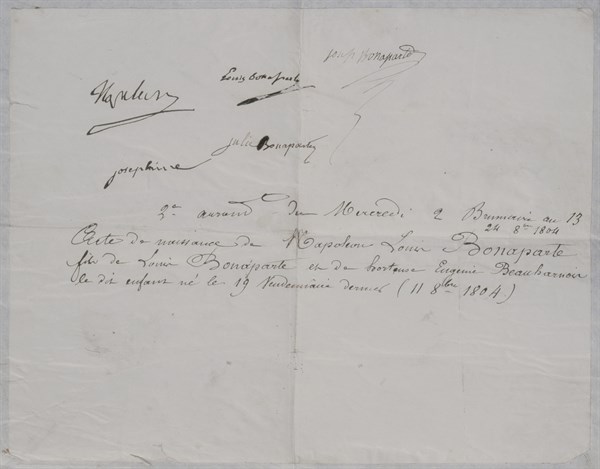 Joseph Bonaparte
Louis Bonaparte
Napoleon
Julie Bonaparte
Josephine
2e arrond. du Mercredi 2 Brumaire an 13
24 8re 1804
Acte de naissance de Napoleon Louis Bonaparte
fils de Louis Bonaparte et de hortense Eugenie Beauharnois
le dit enfant né le 19 Vendemiaire dernier (11 8bre 1804.)